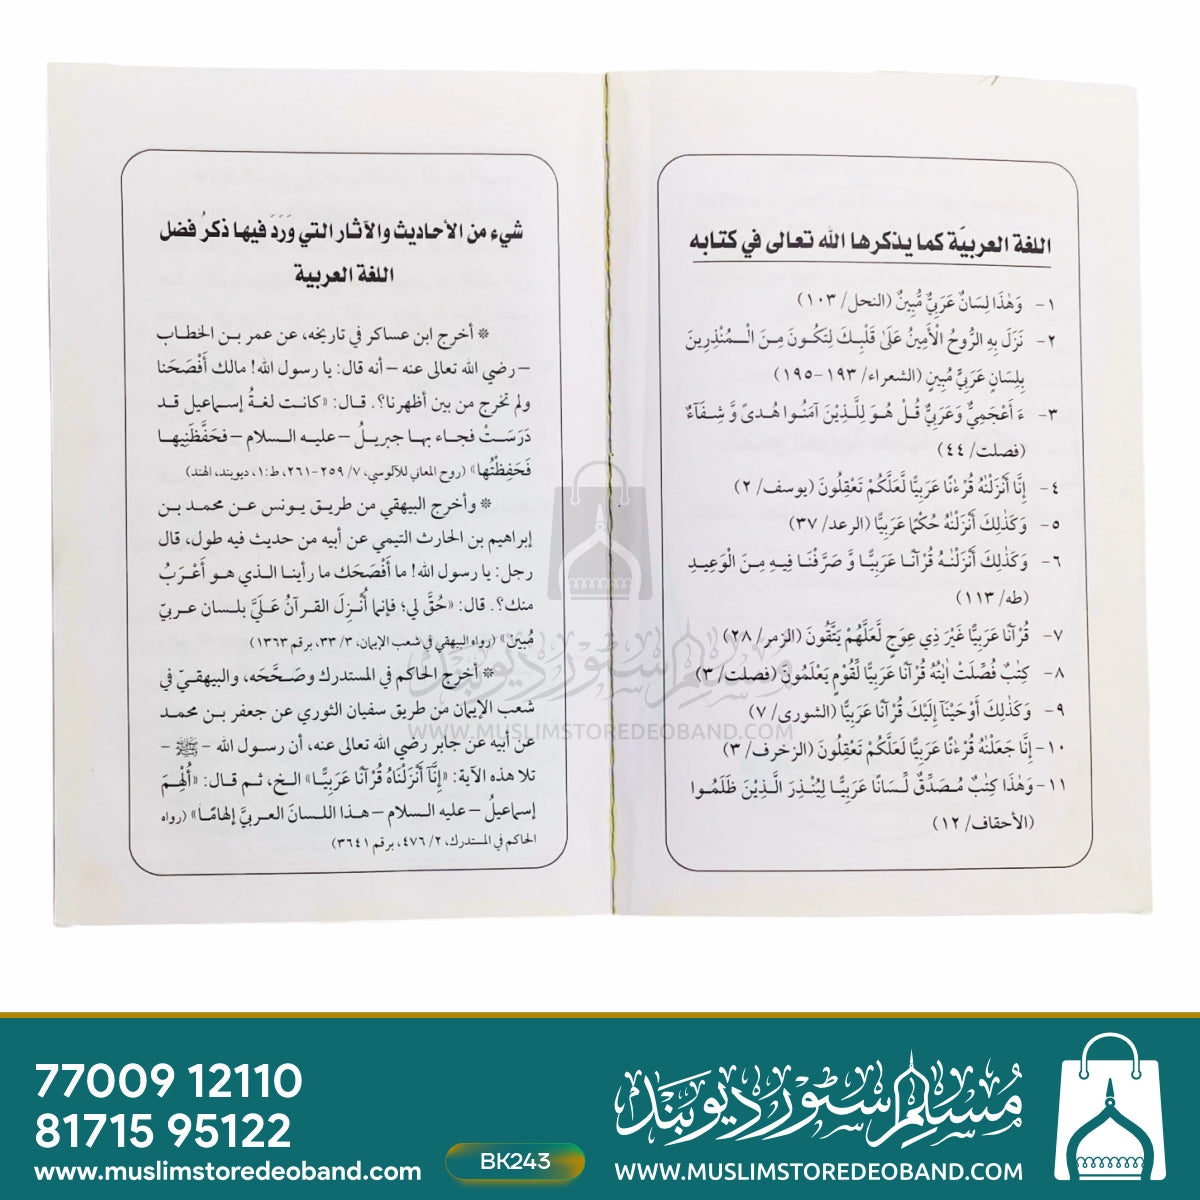 اللغة العربيّة كما يذكرها الله تعالى في كتابه
١- وَهٰذَا لِسَانٌ عَرَبِيٌّ مُّبِينٌ (النحل/ ١٠٣)
٢- نَزَلَ بِهِ الرُّوحُ الْأَمِينُ عَلىٰ قَلْبِكَ لِتَكُونَ مِنَ الْـمُنْذِرِينَ
بِلِسَانٍ عَرَبِيٍّ مُبِينٍ (الشعراء/ ١٩٣-١٩٥)
٣- ءَ أَعْجَمِيٌّ وَعَرَبِيٌّ قُلْ هُوَ لِلَّذِينَ آمَنُوا هُدىً وَّ شِفَآءٌ
(فصلت/ ٤٤)
٤- إِنَّا أَنْزَلْنٰهُ قُرْءٰنًا عَرَبِيًّا لَّعَلَّكُمْ تَعْقِلُونَ (يوسف/ ٢)
٥- وَكَذٰلِكَ أَنْزَلْنٰهُ حُكْمًا عَرَبِيًّا (الرعد/ ٣٧)
٦- وَكَذٰلِكَ أَنْزَلْنٰهُ قُرْآنًا عَرَبِيًّا وَّ صَرَّفْنَا فِيهِ مِنَ الْوَعِيدِ
(طه/ ١١٣)
٧- قُرْآنًا عَرَبِيًّا غَيْرَ ذِي عِوَجٍ لَّعَلَّهُمْ يَتَّقُونَ (الزمر/ ٢٨)
٨- كِتٰبٌ فُصِّلَتْ اٰيٰتُهُ قُرْآنًا عَرَبِيًّا لِّقَوْمٍ يَعْلَمُونَ (فصلت/ ٣)
٩- وَكَذٰلِكَ أَوْحَيْنَآ إِلَيْكَ قُرْآنًا عَرَبِيًّا (الشورى/ ٧)
١٠- إِنَّا جَعَلْنٰهُ قُرْءٰنًا عَرَبِيًّا لَعَلَّكُمْ تَعْقِلُونَ (الزخرف/ ٣)
١١- وَهٰذَا كِتٰبٌ مُصَدِّقٌ لِّسَانًا عَرَبِيًّا لِيُنْذِرَ الَّذِيْنَ ظَلَمُوا
(الأحقاف/ ١٢)
شيء من الأحاديث والآثار التي وَرَدَ فيها ذكرُ فضل
اللغة العربية
* أخرج ابن عساكر في تاريخه، عن عمر بن الخطاب
– رضي الله تعالى عنه – أنه قال: يا رسول الله! مالك أَفْصَحَنا
ولم تخرج من بين أظهرنا؟. قال: «كانت لغةُ إسماعيل قد
دَرَسَتْ فجاء بها جبريلُ – عليه السلام – فحَفَّظَنِيها
فَحَفِظْتُها» (روح المعاني للآلوسي، ٧/ ٢٥٩-٢٦١، ط:١، ديوبند، الهند)
* وأخرج البيهقي من طريق يونس عن محمد بن
إبراهيم بن الحارث التيمي عن أبيه من حديث فيه طول، قال
رجل: يا رسول الله! ما أَفْصَحَك ما رأينا الذي هو أَعْرَبُ
منك؟. قال: «حُقَّ لي؛ فإنما أُنْزِلَ القرآنُ عَلَيَّ بلسان عربيّ
مُبين» (رواه البيهقي في شعب الإيمان، ٣/ ٣٣، برقم ١٣٦٣)
* أخرج الحاكم في المستدرك وصَحَّحَه، والبيهقيّ في
شعب الإيمان من طريق سفيان الثوري عن جعفر بن محمد
عن أبيه عن جابر رضي الله تعالى عنه، أن رسول الله – ﷺ –
تلا هذه الآية: «إِنَّآ أَنْزَلْنَاهُ قُرْآنًا عَرَبِيًّا» الخ، ثم قال: «أُلْهِمَ
إسماعيلُ – عليه السلام – هذا اللسانَ العربيَّ إلهامًا» (رواه
الحاكم في المستدرك، ٢/ ٤٧٦، برقم ٣٦٤١)
مسلم سٹور دیوبند
WWW.MUSLIMSTOREDEOBAND.COM
77009 12110
81715 95122
www.muslimstoredeoband.com
BK243
مُسلم سٹور دیوبند
WWW.MUSLIMSTOREDEOBAND.COM